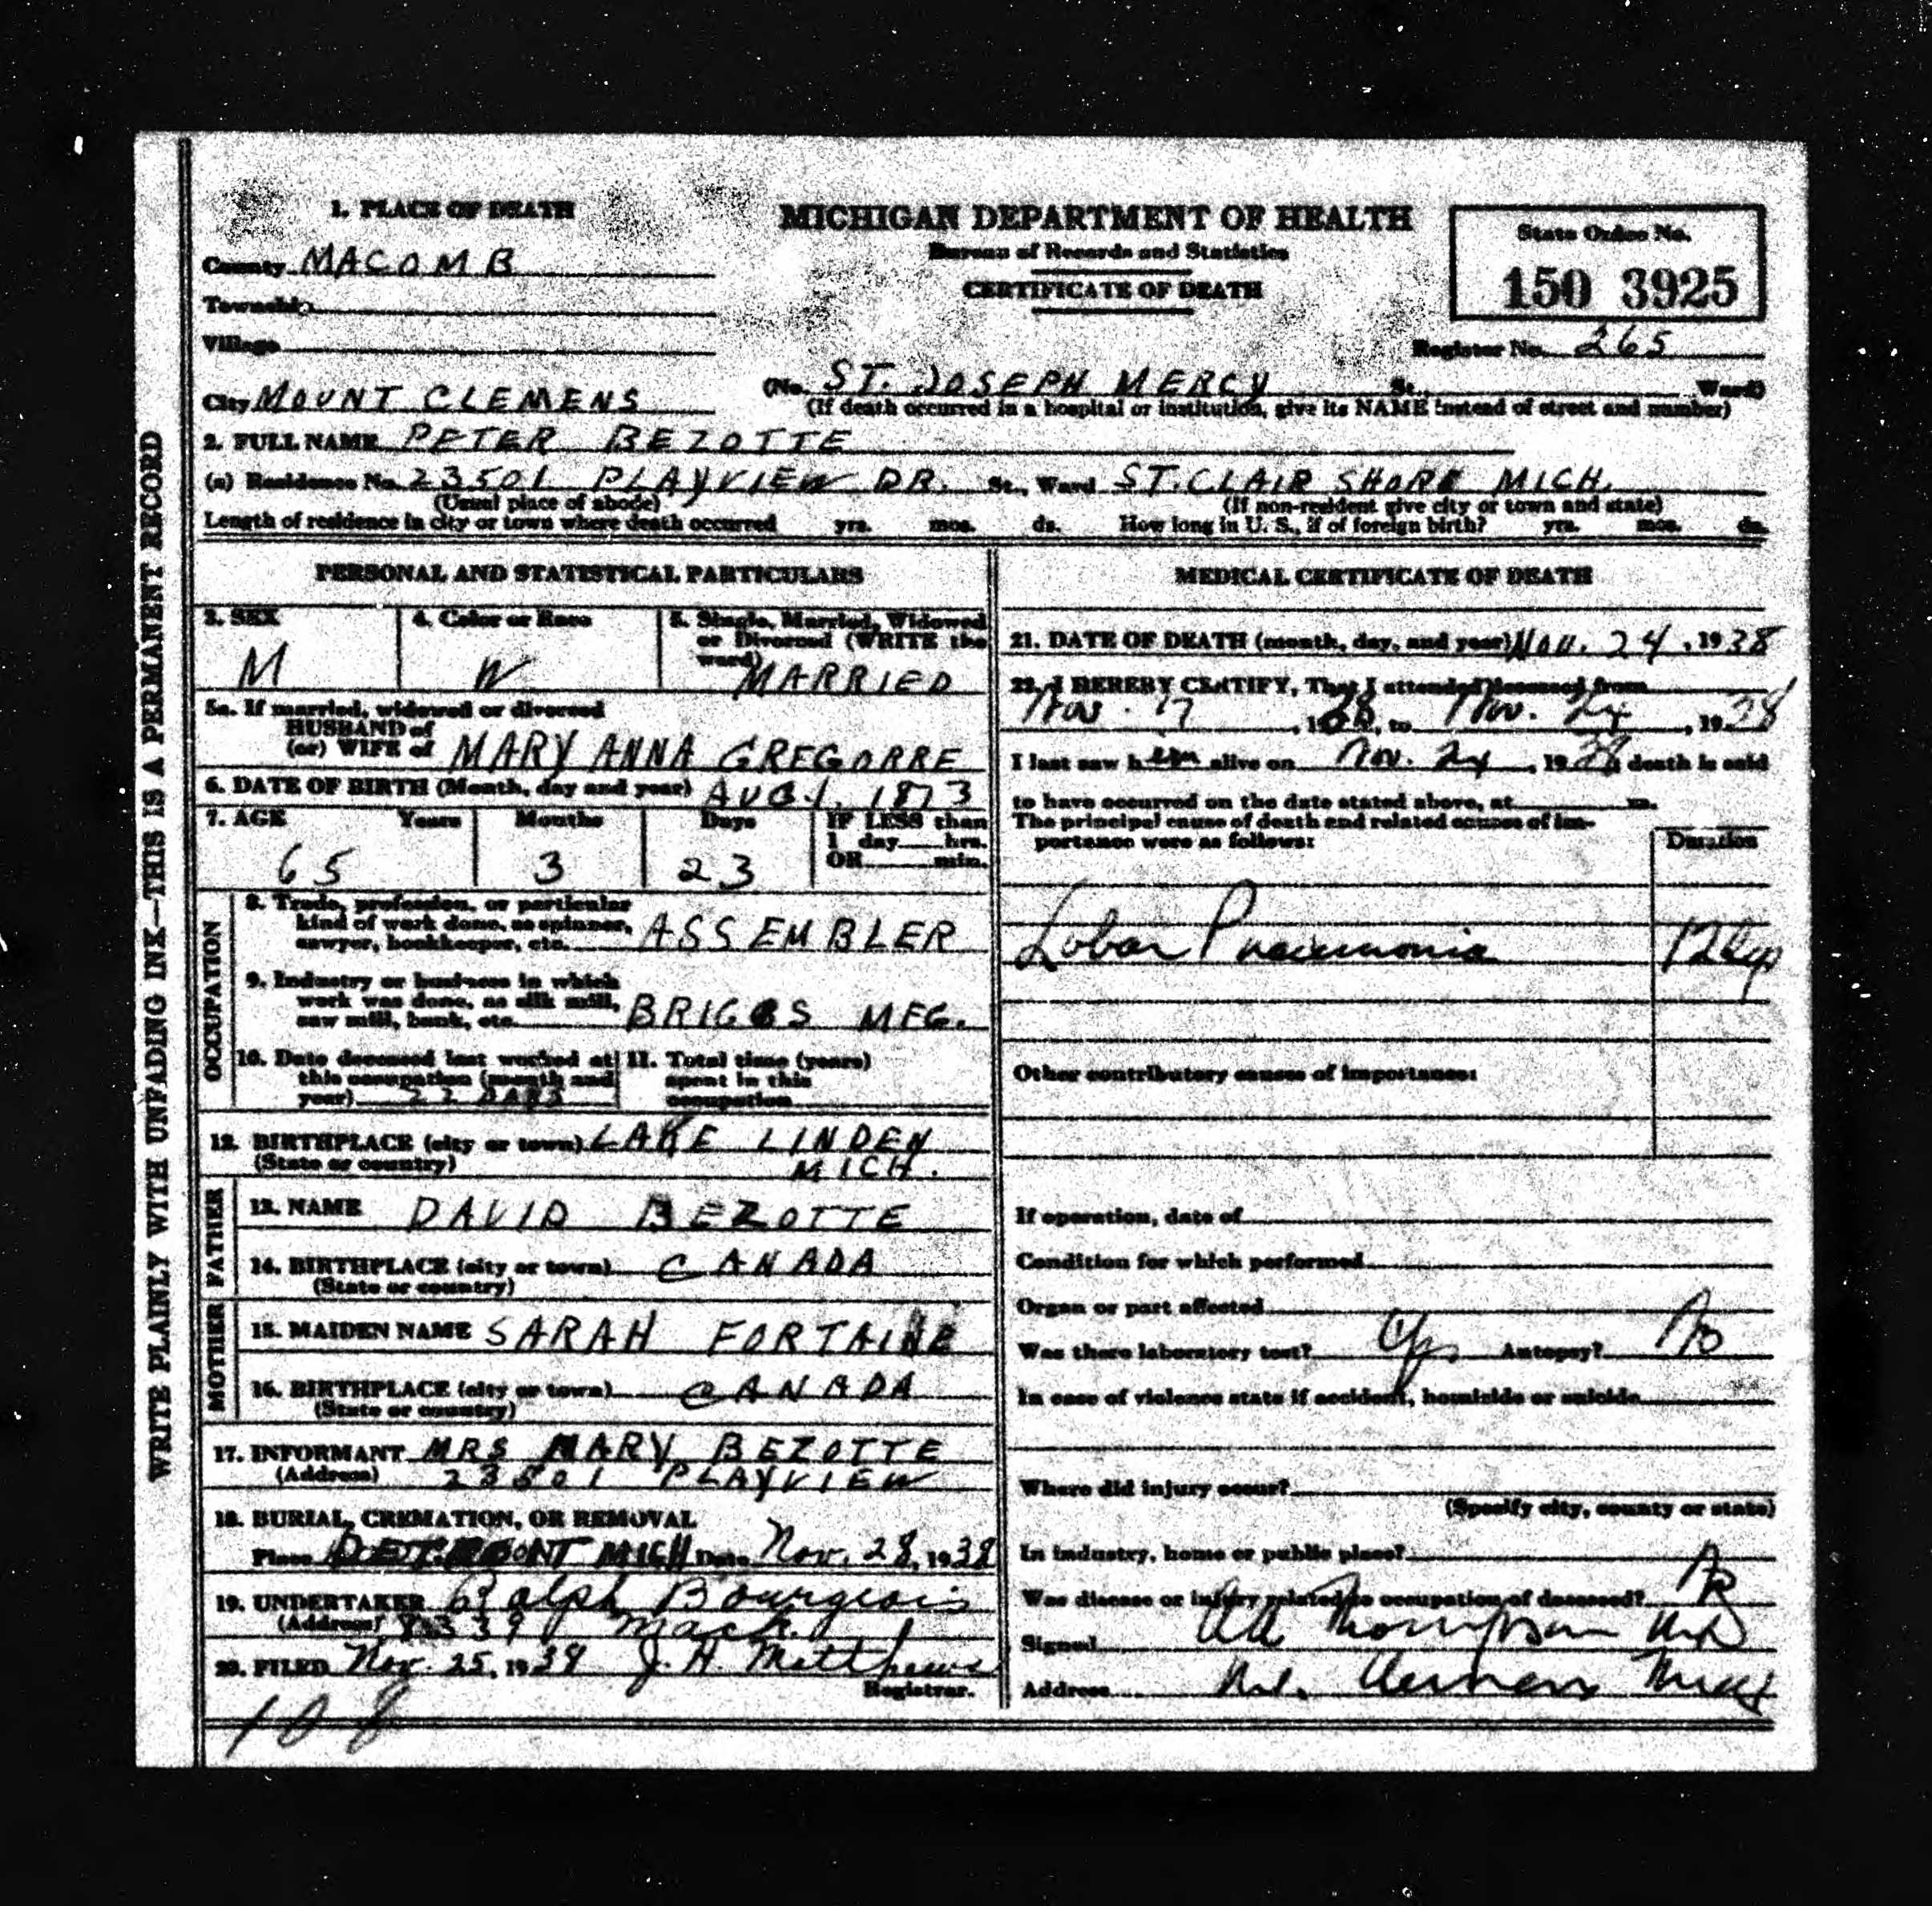 WRITE PLAINLY WITH UNFADING INK—THIS IS A PERMANENT RECORD
1. PLACE OF DEATH
County MACOMB
Township
Village
City MOUNT CLEMENS
MICHIGAN DEPARTMENT OF HEALTH
Bureau of Records and Statistics
CERTIFICATE OF DEATH
State Office No.
150 3925
Register No. 265
(No. ST. JOSEPH MERCY St., Ward)
(If death occurred in a hospital or institution, give its NAME instead of street and number)
2. FULL NAME PETER BEZOTTE
(a) Residence No. 23501 PLAYVIEW DR. St., Ward ST. CLAIR SHORE MICH.
(Usual place of abode) (If non-resident give city or town and state)
Length of residence in city or town where death occurred yrs. mos. ds. How long in U. S., if of foreign birth? yrs. mos. ds.
PERSONAL AND STATISTICAL PARTICULARS
3. SEX
M
4. Color or Race
W
5. Single, Married, Widowed
or Divorced (WRITE the
word)
MARRIED
5a. If married, widowed or divorced
HUSBAND of
(or) WIFE of MARY ANNA GREGORRE
6. DATE OF BIRTH (Month, day and year) AUG. 1. 1873
7. AGE Years Months Days IF LESS than
1 day hrs.
OR min.
65 3 23
OCCUPATION
8. Trade, profession, or particular
kind of work done, as spinner,
sawyer, bookkeeper, etc. ASSEMBLER
9. Industry or business in which
work was done, as silk mill,
saw mill, bank, etc. BRIGGS MFG.
10. Date deceased last worked at
this occupation (month and
year) 22 DAYS
11. Total time (years)
spent in this
occupation
12. BIRTHPLACE (city or town) LAKE LINDEN
(State or country) MICH.
FATHER
13. NAME DAVID BEZOTTE
14. BIRTHPLACE (city or town) CANADA
(State or country)
MOTHER
15. MAIDEN NAME SARAH FORTAINE
16. BIRTHPLACE (city or town) CANADA
(State or country)
17. INFORMANT MRS MARY BEZOTTE
(Address) 23501 PLAYVIEW
18. BURIAL, CREMATION, OR REMOVAL
Place MICH Date Nov. 28, 1938
19. UNDERTAKER Ralph Bourgeois
(Address) Mack
20. FILED Nov. 25, 1938 J. H. Matthews
Registrar.
108
MEDICAL CERTIFICATE OF DEATH
21. DATE OF DEATH (month, day, and year) Nov. 24, 1938
22. I HEREBY CERTIFY, That I attended deceased from
Nov. 17, 1938, to Nov. 24, 1938
I last saw him alive on Nov. 24, 1938 death is said
to have occurred on the date stated above, at m.
The principal cause of death and related causes of im-
portance were as follows:
Duration
Lobar Pneumonia
Other contributory causes of importance:
If operation, date of
Condition for which performed
Organ or part affected
Was there laboratory test? Autopsy? No
In case of violence state if accident, homicide or suicide
Where did injury occur?
(Specify city, county or state)
In industry, home or public place?
Was disease or injury related to occupation of deceased? No
Signed Thompson M.D.
Address Mt. Clemens Mich